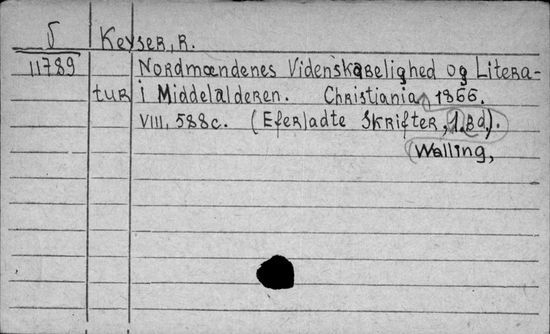 5 Keyser, R.
11789 Nordmændenes Videnskabelighed og Litera-
tur i Middelalderen. Christiania, 1866.
VIII, 588c. (Efterladte Skrifter, 1.Bd.).
(Walling,